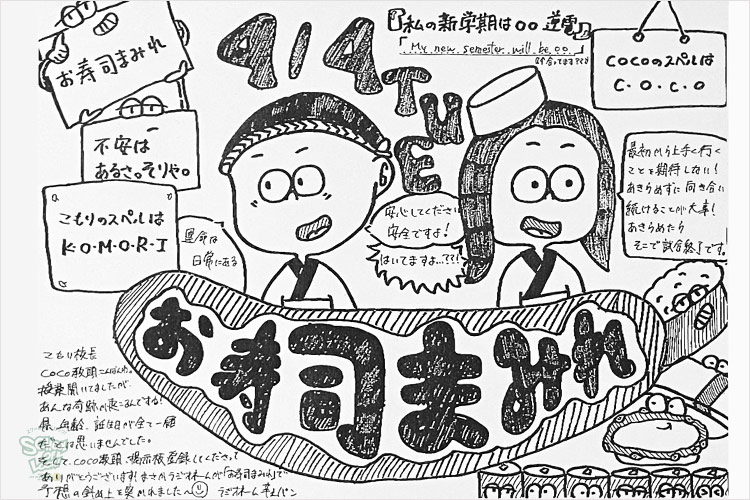 お寿司まみれ
不安は
あるさ。そりゃ。
こもりのスペルは
K・O・M・O・R・I
4/4
TUE
『私の新学期は〇〇逆電』
「My new semester will be 〇〇.
COCOのスペルは
C・O・C・O
最初から上手く行く
ことを期待しない!
あきらめずに向き合い
続けることが大事!
あきらめたら
そこで試合終了です。
安心してください
安全ですよ!
はいてますよ...??!
運命は
日常にある
お寿司まみれ
こもり校長
COCO教頭こんばんわ。
授業聞いてましたが
あんな奇跡が起こるんですね!
県、年齢、誕生日が全て一緒
だとは思いませんでした。
そしてCOCO教頭、掲示板登録してくださって
ありがとうございます!まさかラジオネームが「お寿司まみれ」で
予想の斜め上を突かれました